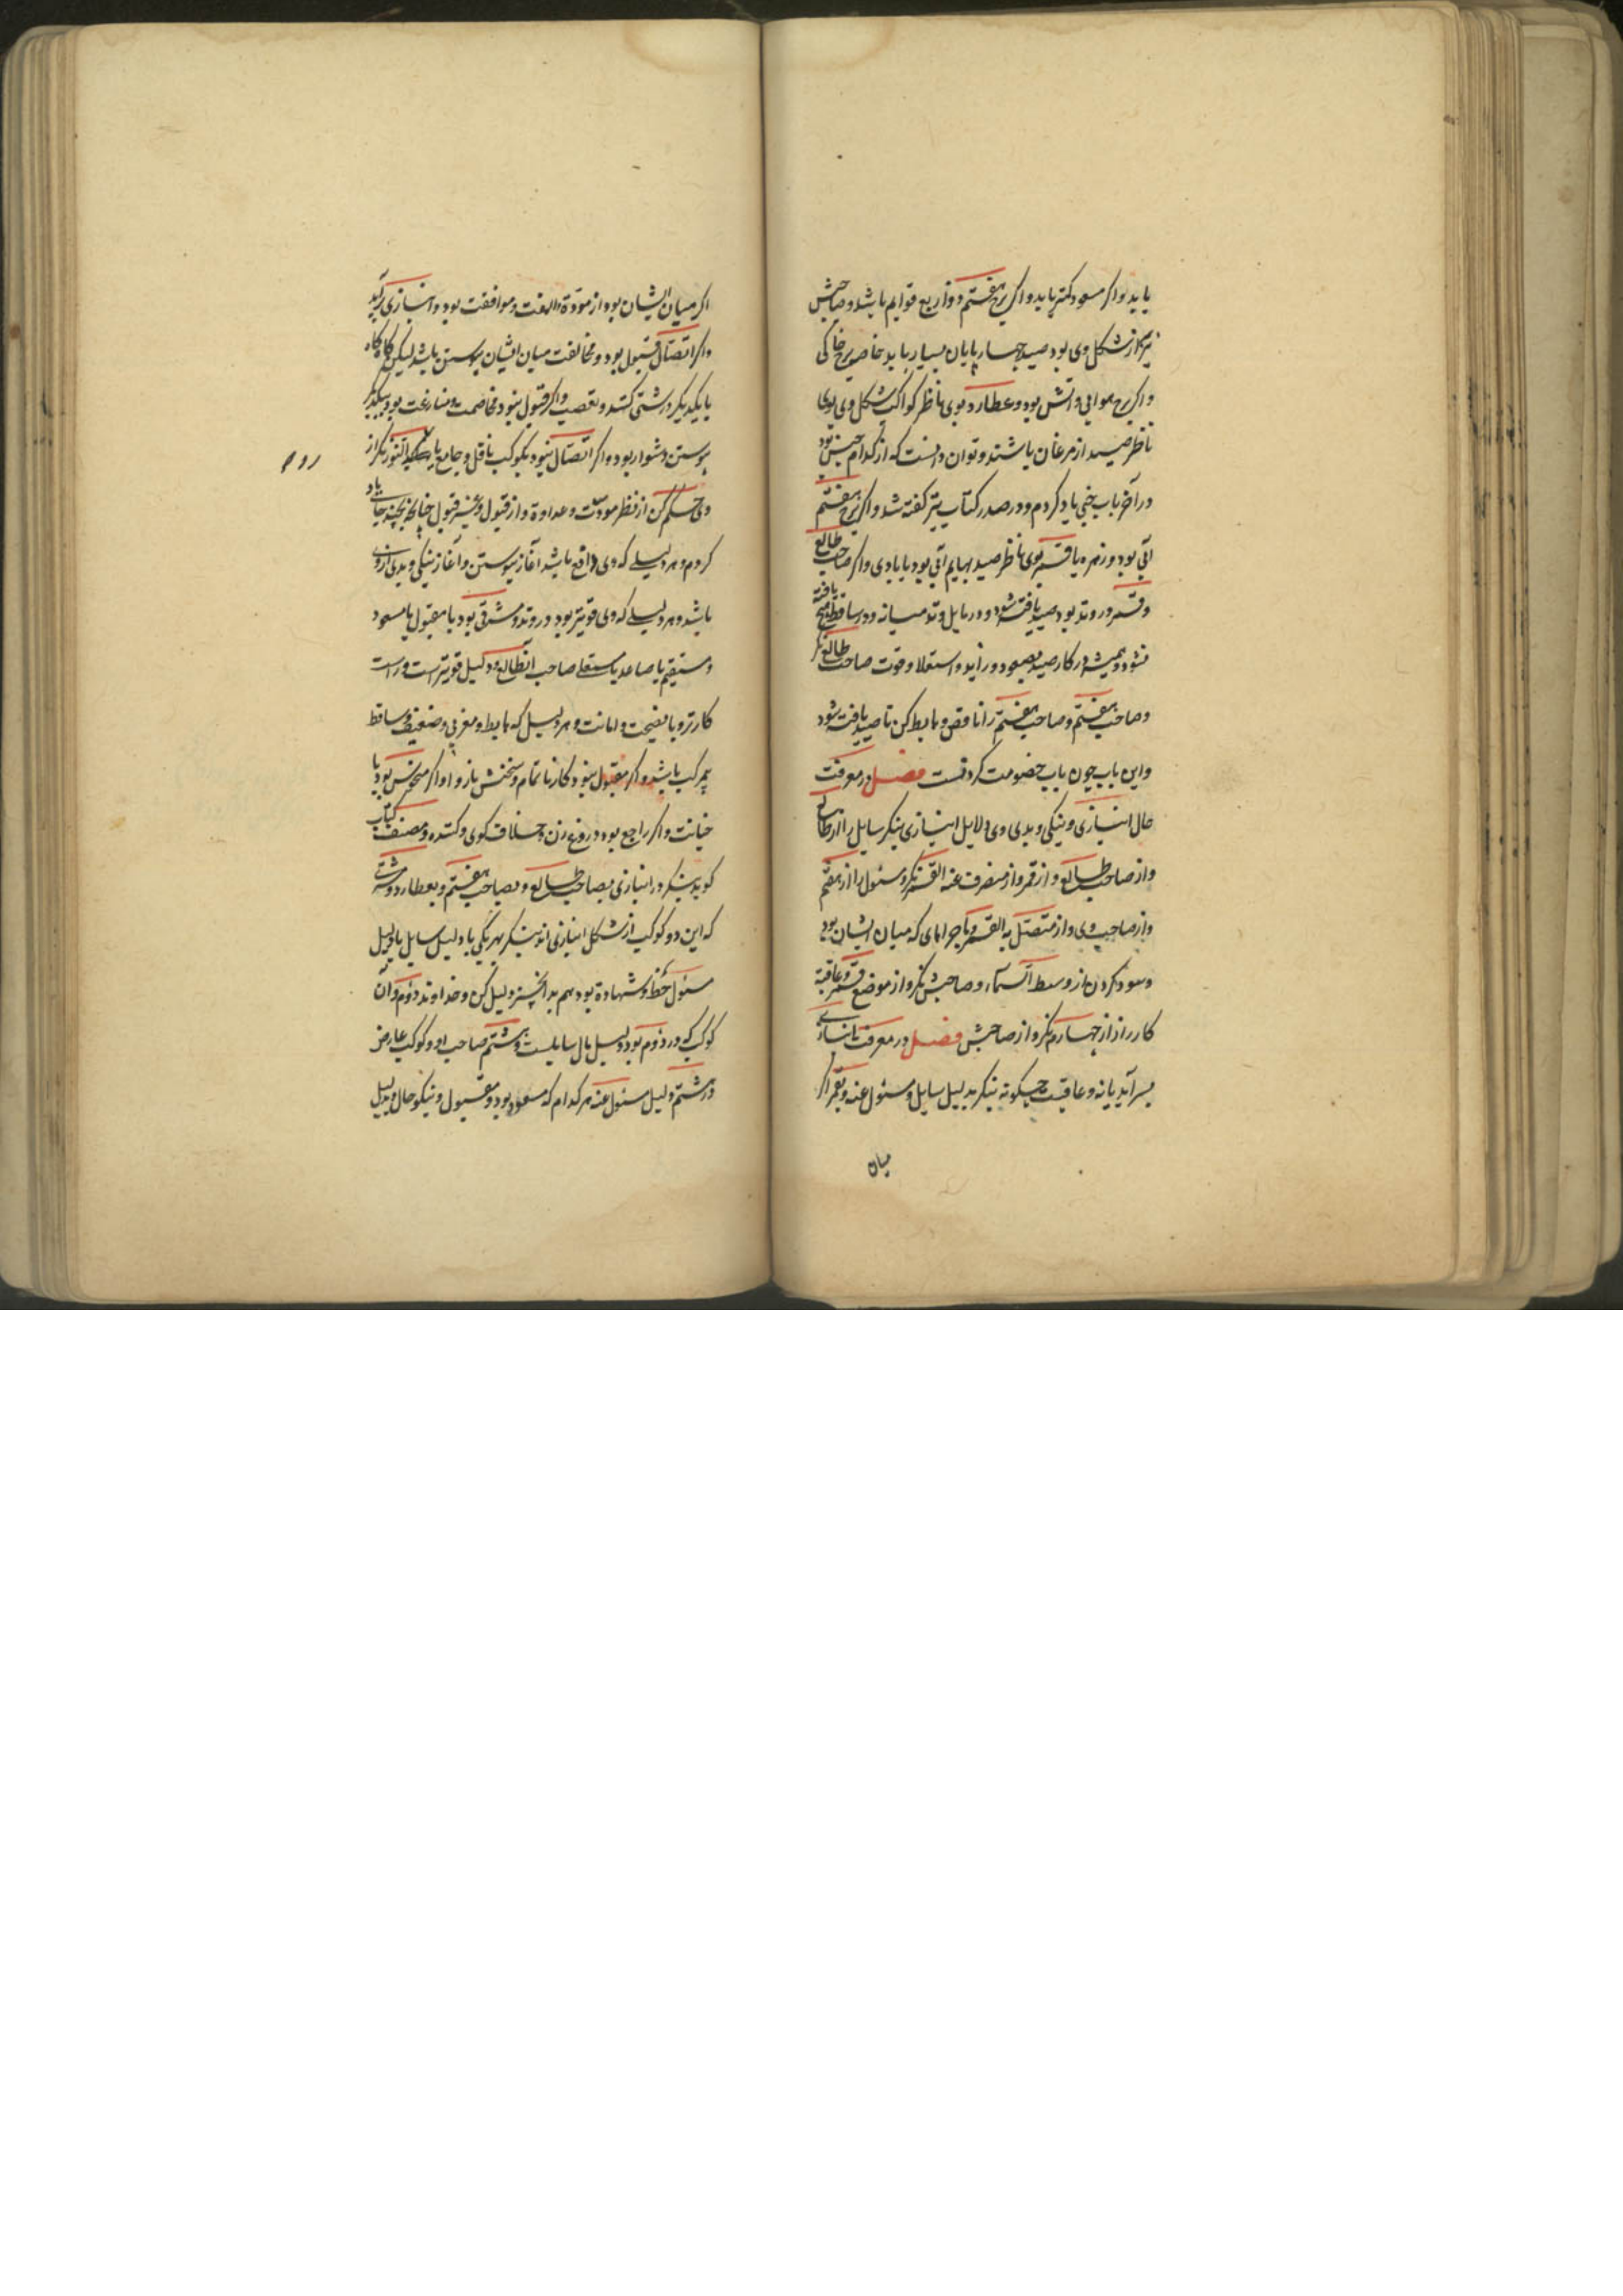 یابد و اکر مسعود کمتر یابد و اکر برج هفتم ذو اربع قوایم باشد و صاحبش
نیز از شکل وی بود صید چهارپایان بسیار یابد خاصه برج خاکی
و اکر برج هوایی و آتش بود و عطارد بوی ناظر کواکب شکل وی بوی
ناظر صید از مرغان باشند و توان دانست که از کدام جنس بود
در آخر باب خبی یاد کردم و در صدر کتاب نیز کفته شد و اکر برج هفتم
آبی بود و زهره یا قمر بوی ناظر صید بهایم آبی بود یا بادی و اکر صاحب طالع
و قمر در وتد بود صید یافته شود و در مایل وتد میانه و در ساقط هیچ یافته
نشود و همیشه در کار صید بصعود و زاید و استعلا و قوت صاحب طالع نکر
و صاحب هفتم و صاحب هفتم را ناقص و هابط کن تا صید یافته شود
و این باب چون باب خصومت کردنست فصل در معرفت
حال انبازی و نیکی و بدی وی دلایل انبازی بنکر سایل را از طالع
و از صاحب طالع و از قمر و از منصرف عنه القمر نکر و مسئول را از هفتم
و از صاحب وی و از متصل به القمر و ماجرا مای که میان ایشان بود
و سود کردن از وسط السماء و صاحبش نکر و از موضع قمر و عاقبة
کار را از چهارم نکر و از صاحبش فصل در معرفت تا انبازی
بسر آید یا نه و عاقبت چکونه بنکر بدلیل سایل و مسئول عنه و بقمر اکر
میان
اکر میان ایشان بود از مودة و الفت و موافقت بود و انبازی برآید
و اکر اتصال قبول بود و مخالفت میان ایشان پیوستن باشد لیکن کاه کاه
با یکدیکر درشتی کنند و تعصب و اکر قبول نبود مخاصمت و منازعت بود بیکدیکر
پیوستن دشوار بود و اکر اتصال نبود بکوکب ناقل و جامع یا النور نکر از
وی حکم کن از نظر مودت و عداوة و از قبول و غیر قبول چنانکه بچند جای یاد
کردم و هر دلیلی که وی دافع باشد آغاز پیوستن و آغاز نیکی و بدی از وی
باشد و هر دلیلی که وی قویتر بود در وتد و مشرقی بود یا مقبول یا مسعود
و مستقیم یا صاعد یا مستعلی صاحب آنطالع و دلیل قویتر است و راست
کارتر و با نصیحت و امانت و هر دلیل که هابط و مغربی و ضعیف و ساقط
بمرکب باشد و اکر مقبول نبود کار نا تمام و سخنش باز و او اکر منحوس بود با
خیانت و اکر راجع بود دروغ زن و خلاف کوی و کننده و مصنف کتاب
کوید بنکر در انبازی بصاحب طالع و بصاحب هفتم و بعطارد و مشتری
که این دو کوکب از شکل انبازی اند بنکر بهر یکی با دلیل سایل یا دلیل
مسئول حظ و شهادة بود هم بدان چیز دلیل کن و خداوند دوم و آن
کوکب که در دوم بود دلیل مال سایلست و هشتم صاحب او و کوکب عارض
در هشتم دلیل مسئول عنه هر کدام که مسعود بود و مقبول و نیکو حال و بدلیل